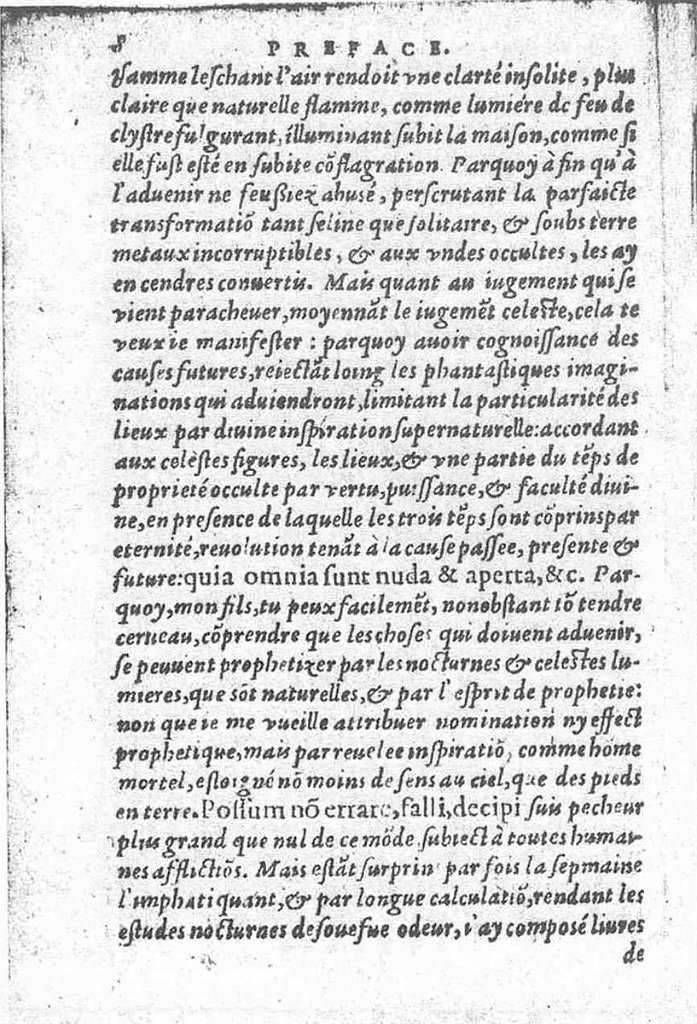 PREFACE.
flamme leſchant l'air rendoit vne clarté inſolite, plus
claire que naturelle flamme, comme lumiére de feu de
clyſtre fulgurant, illuminant ſubit la maiſon, comme ſi
elle fuſt eſté en ſubite cõflagration. Parquoy à fin qu'à
l'aduenir ne feuſsiez abuſé, perſcrutant la parfaicte
transformatiõ tant ſeline que ſolitaire, & ſoubs terre
metaux incorruptibles, & aux vndes occultes, les ay
en cendres conuertis. Mais quant au iugement qui ſe
vient paracheuer, moyennãt le iugemẽt celeſte, cela te
veux ie manifeſter : parquoy auoir cognoiſſance des
cauſes futures, reiectãt loing les phantaſtiques imagi-
nations qui aduiendront, limitant la particularité des
lieux par diuine inſpiration ſupernaturelle: accordant
aux celeſtes figures, les lieux, & vne partie du tẽps de
proprieté occulte par vertu, puiſſance, & faculté diui-
ne, en preſence de laquelle les trois tẽps ſont cõprins par
eternité, reuolution tenãt à la cauſe paſſee, preſente &
future: quia omnia ſunt nuda & aperta, &c. Par-
quoy, mon fils, tu peux facilemẽt, nonobſtant tõ tendre
cerueau, cõprendre que les choſes qui doiuent aduenir,
ſe peuuent prophetizer par les nocturnes & celeſtes lu-
mieres, que sõt naturelles, & par l'eſprit de prophetie:
non que ie me vueille attribuer nomination ny effect
prophetique, mais par reuelee inſpiratiõ, comme hõme
mortel, eſloigné nõ moins de ſens au ciel, que des pieds
en terre. Poſſum nõ errare, falli, decipi ſuis pecheur
plus grand que nul de ce mõde, ſubiect à toutes humai-
nes afflictiõs. Mais eſtãt ſurprin par fois la ſepmaine
l'imphatiquant, & par longue calculatiõ, rendant les
eſtudes nocturnes de ſouefue odeur, i'ay compoſé liures
de